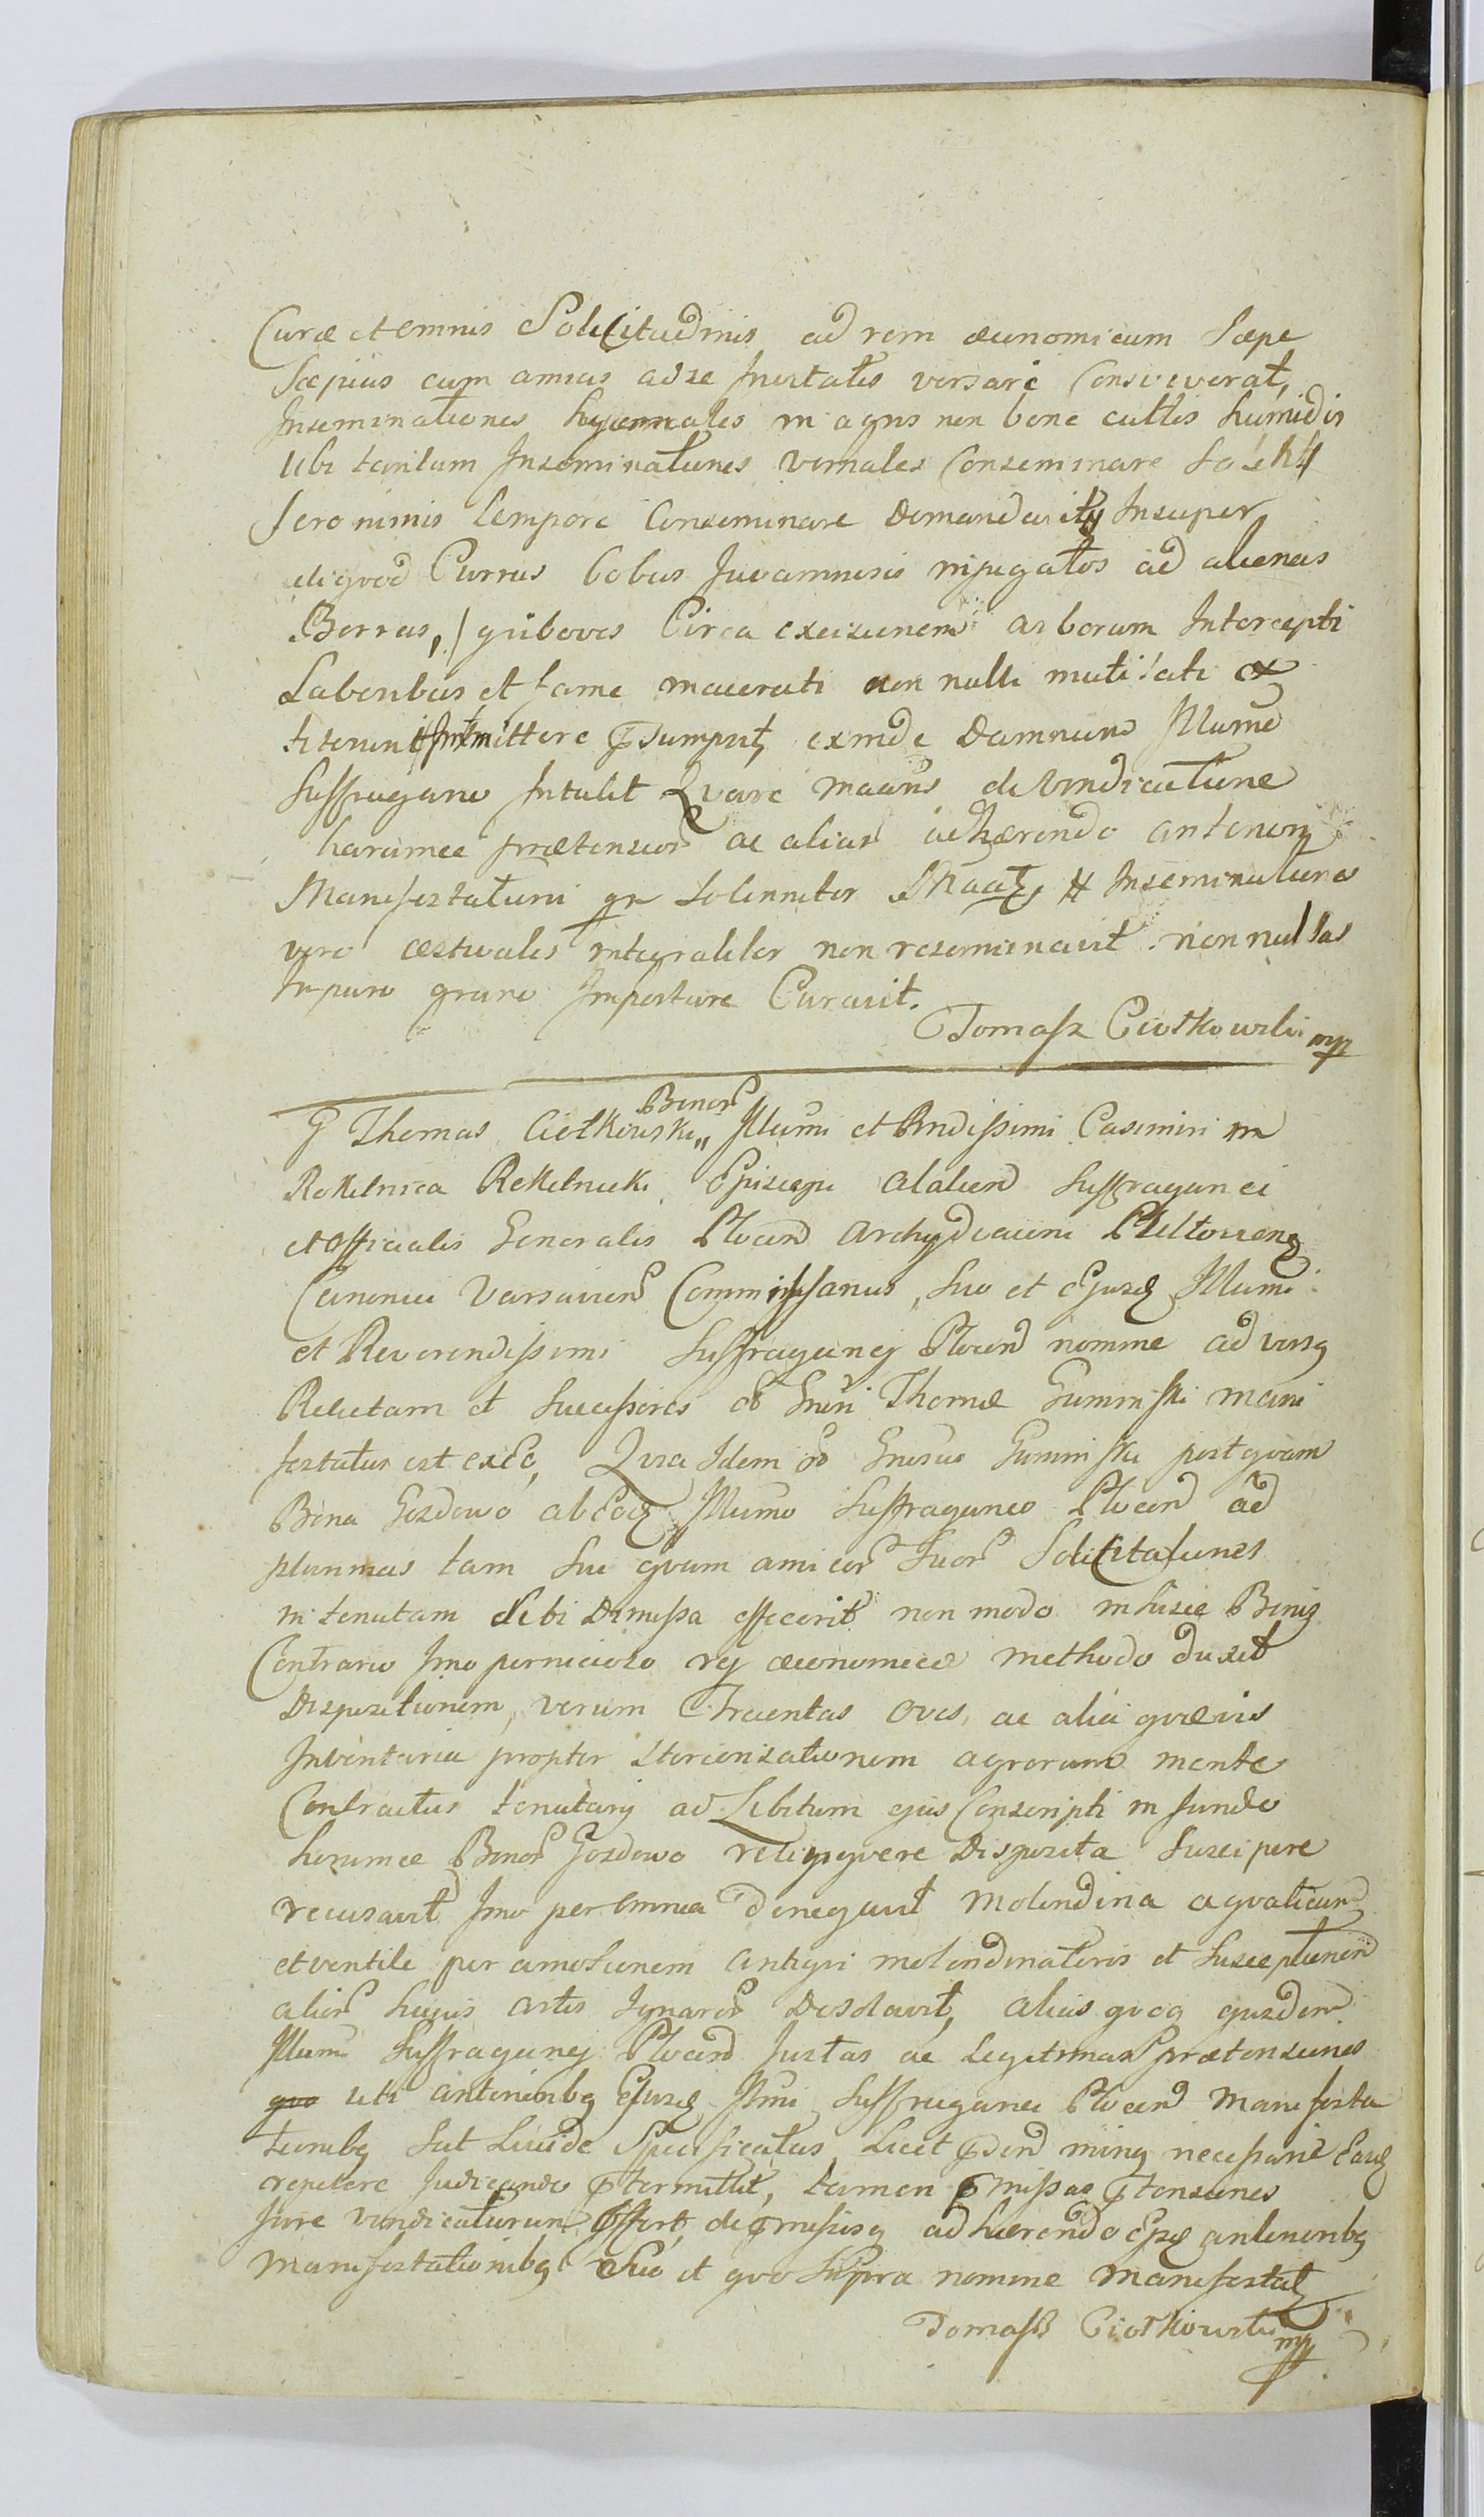 Curæ et omnis Solicitudinis ad rem œconomicam Sæpe
Sæpius cum amicis ad se Invitatis versari Consveverat,
Inseminationes hyemales in agris non bene cultis humidis
Ubi tantum Inseminationes vernales Conseminare
Sero nimis tempore Conseminare Demandavit Insuper
aliqvod Currus bobus Juvamnisis injugatos ad alienas
Borras, / qui boves Circa excisionem arborum Intercepti
Laboribus et fame macerati non nulli mutilati ex
titerunt Intmittere psumpsit, exinde Damnum Illumo
Suffraganeo Intulit Qvare maañs de Vindicatione
harumce prætension ac aliar adhærendo anteriori
Manifestationi qr Solenniter Inseminationes
vero æstivales integraliter non reseminavit non nullas
Impuro grano Importare Curavit.
Tomasz Ciołkowski mp
Bonor
G Thomas Ciołkowski,, Illumi et Rndissimi Casimiri in
Rokitnica Rokitnicki Episcopi Alalien Suffraganei
et Officialis Generalis Plocen Archydiaconi Pultovieng
Canonici Varsavien Commissarius, Suo et Ejusd Illumi
et Reverendissimi Suffraganej Plocen nomine adversg
Relictam et Successores olb Gnri Thomæ Guminski mani
festatus est
Qvia Idem olb Gnrsus Guminski postqvam
Bona Gozdowo ab Eod Illumo Suffraganeo Plocen ad
plurimas tam Sui qvam amicor Suor Solicitationes
in tenutam Sibi Dimissa effecerit non modo in hisce Bonis
Contrario Imo pernicioso rej œconomicæ methodo duxit
Dispositionem, verum Tracentas oves, ac alia qvævis
Inventaria propter stercorisationem agrorum mente
Contractus tenutarij ad Libitum ejus Conscripti in fundo
horumce Bonor Gozdowo reliqvere Disposita Suscipere
recusavit Imo per Omnia Denegavit Molendina aqvaticum
et ventile per amotionem antiqvi molendinatoris et Susceptionem
alior hujus artis Ignaror Desolavit, alias qvoq ejusdem
Illumi Suffraganej Plocen Justas ac Legitimas prætensiones
uti anterioribg Ejusd Illmi Suffraganei Plocen Manifesta
tionibg Sat Liuide Specificatas, Licet pden ming necessarie Easd
repetere Judicando ptermittit, tamen pmissas ptensiones
Jure Vindicaturum Offert, de pmissisq adhærendo Epse anterioribg
Manifestationibg Suo et qvo Supra nomine Manifestat
Tomasz Ciołkowski mp